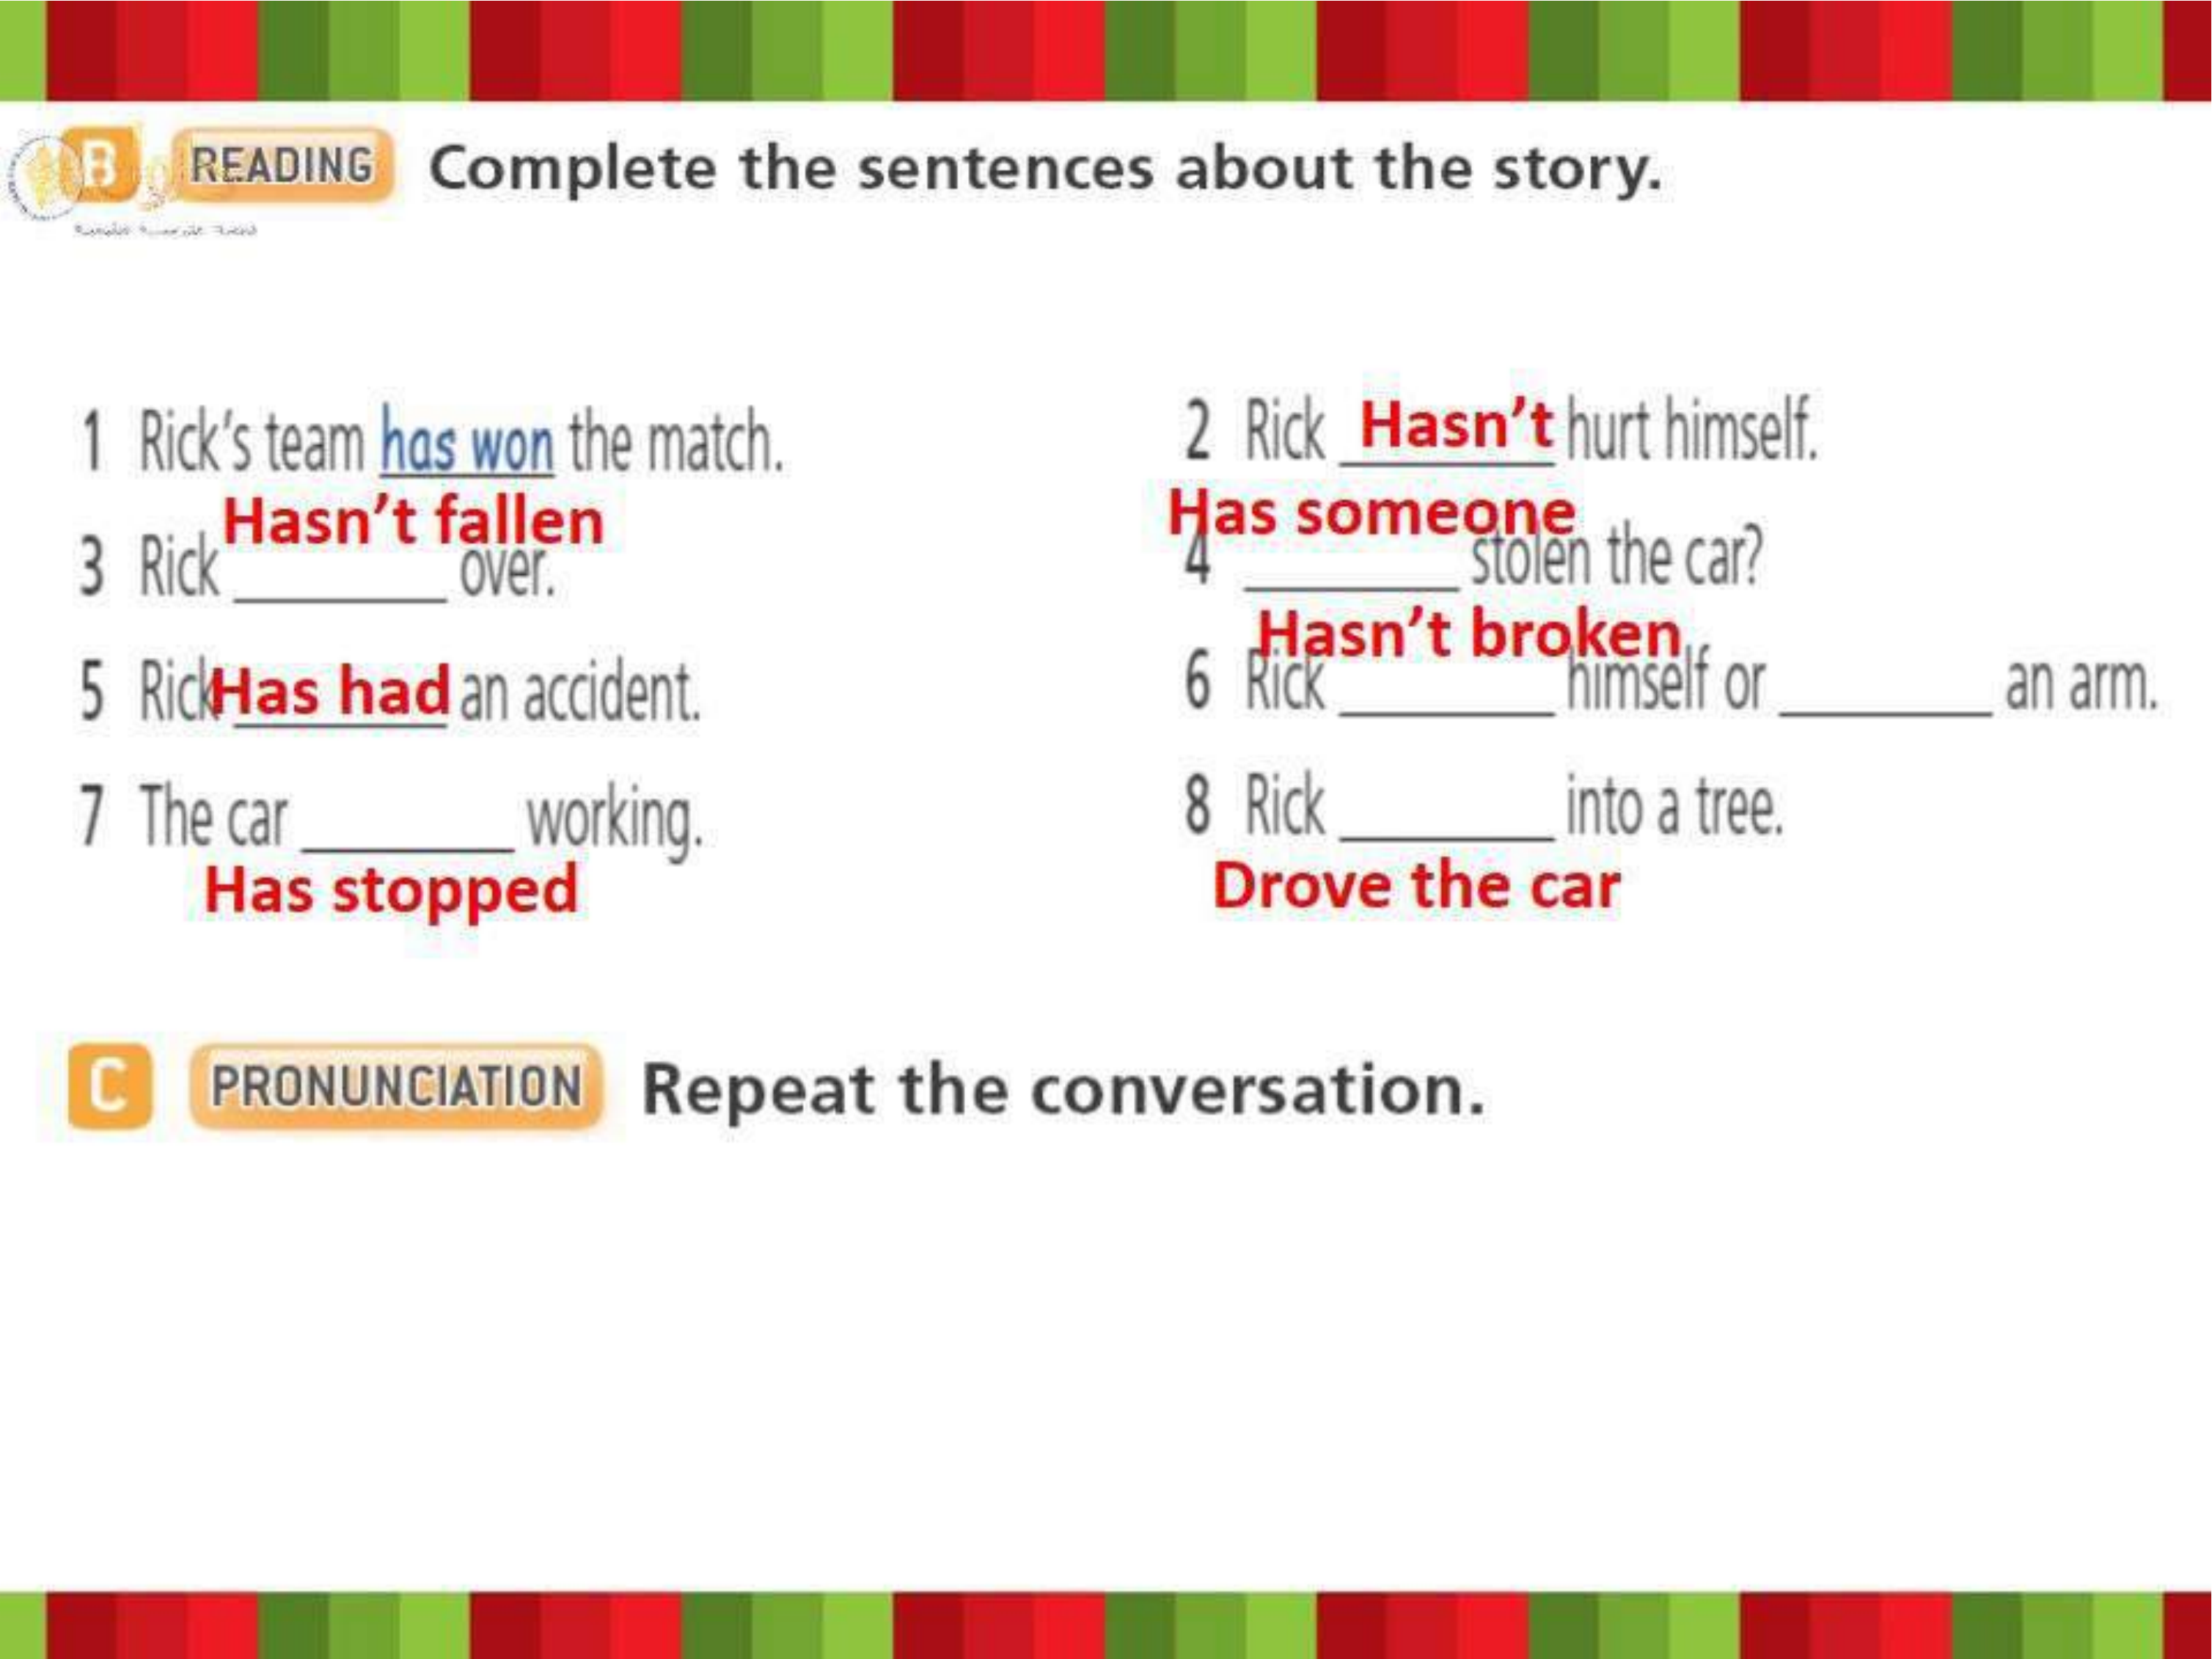 B READING Complete the sentences about the story.
1 Rick's team has won the match.
2 Rick Hasn't hurt himself.
Hasn't fallen
3 Rick ________ over.
Has someone
4 ________ stolen the car?
5 Rick Has had an accident.
Hasn't broken
6 Rick ________ himself or ________ an arm.
7 The car ________ working.
Has stopped
8 Rick ________ into a tree.
Drove the car
C PRONUNCIATION Repeat the conversation.